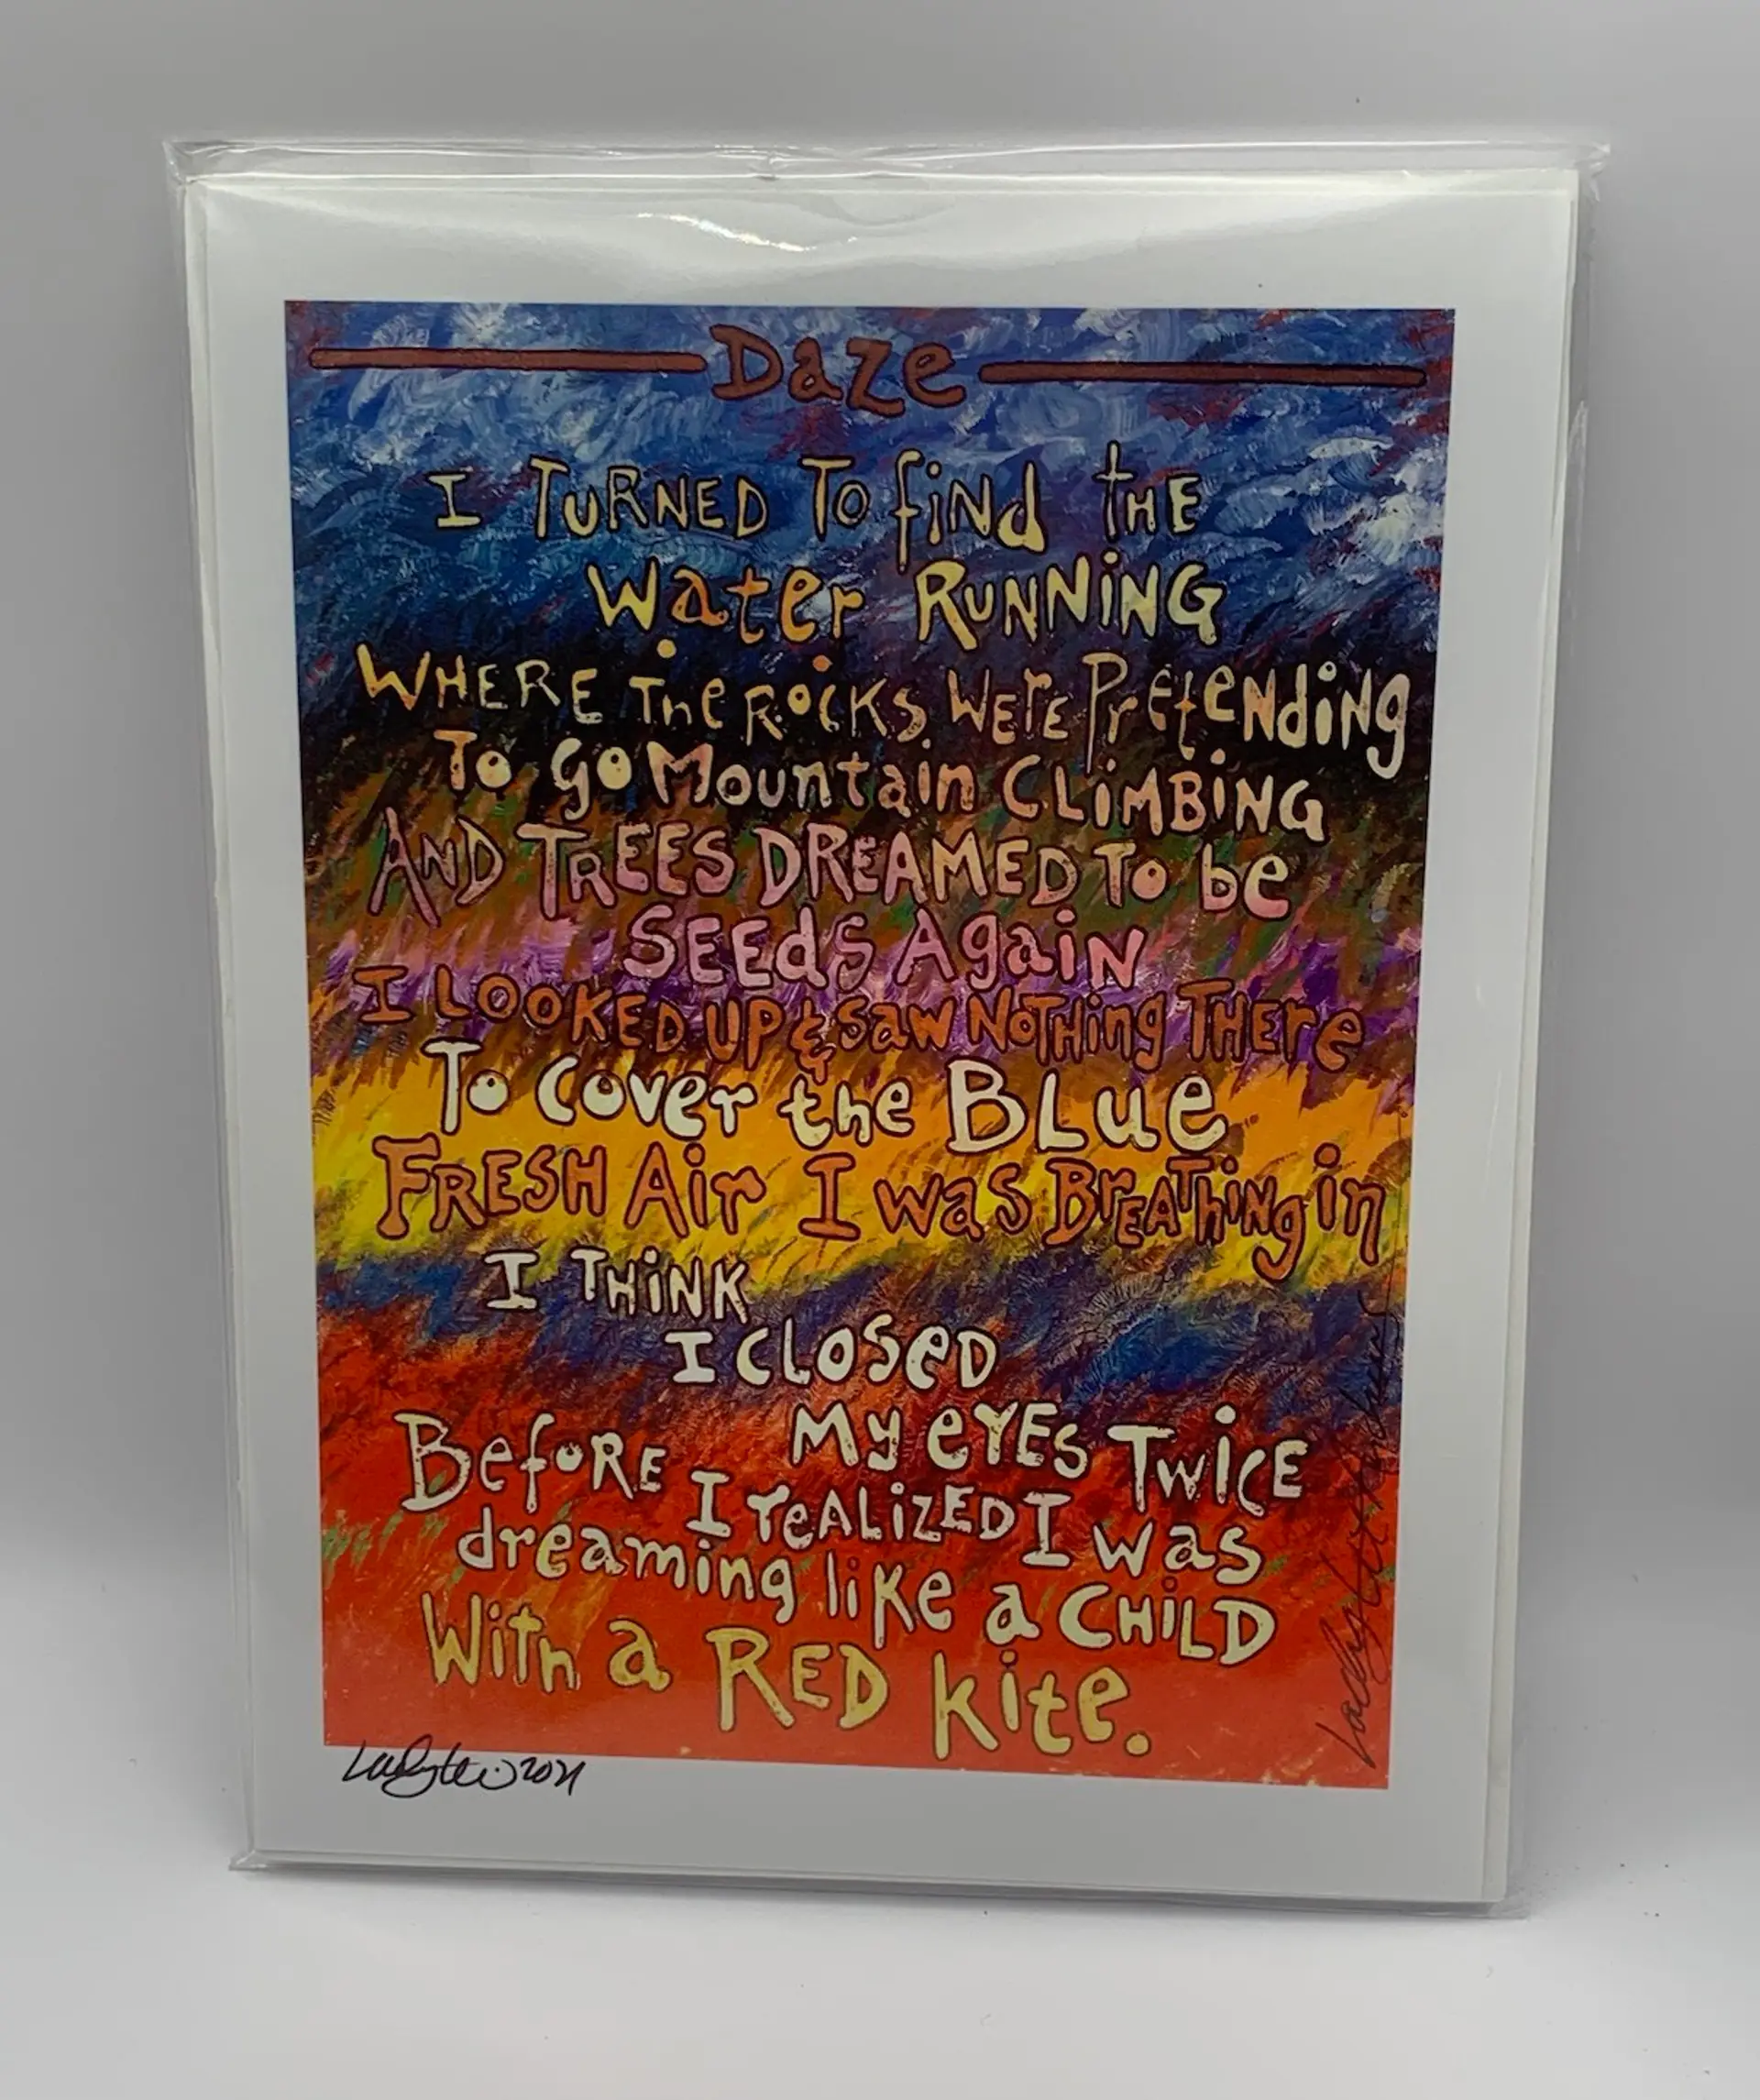 Daze
I TURNED To fiNd tHE
Water RUNNiNG
WHERE The RocKs WerE PretENdiNg
To go Mountain CLiMBiNG
AND TREES DREAMED To be
SEEdS AgaiN
I LOOKED UP & Saw NoTHing THEre
To cover the BLue
FRESH Air I was BrEAThiNg in
I THiNK
I CLOSeD
My eYEs TwicE
BefoRE
I reALiZED I was
dreaming liKe a CHiLD
With a RED kite.
2021